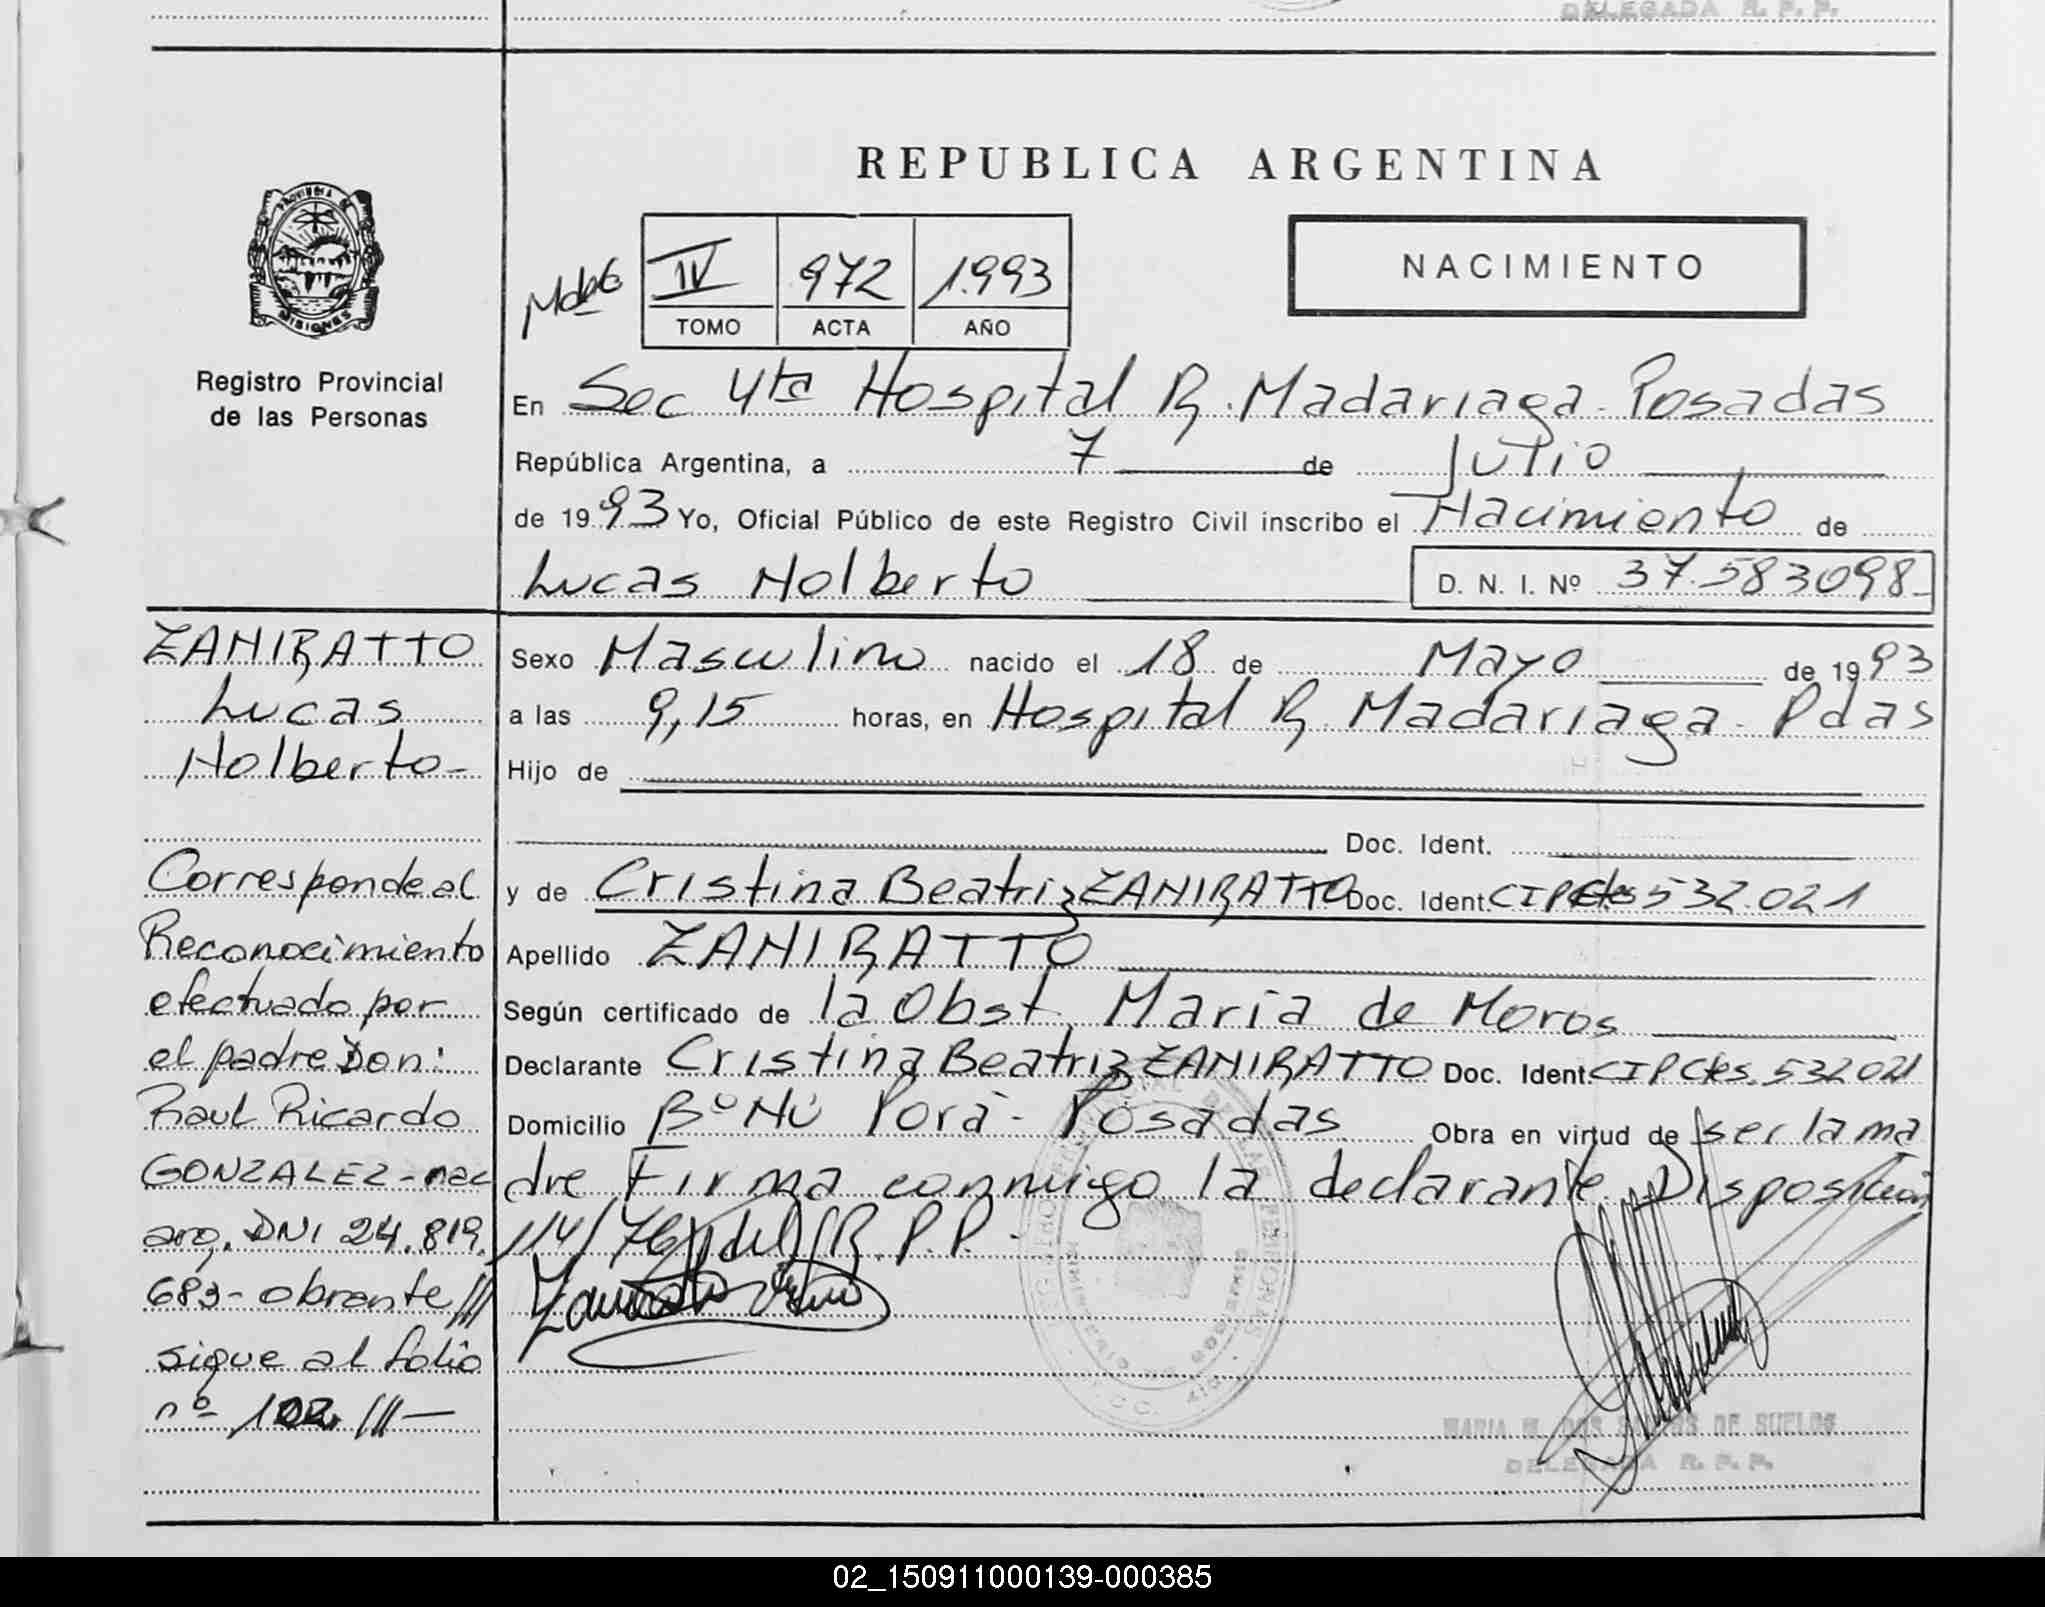 DELEGADA R. P. P.
REPUBLICA ARGENTINA
PROVINCIA DE
MISIONES
Registro Provincial
de las Personas
IV 972 1.993
TOMO ACTA AÑO
NACIMIENTO
En Sec 4ta Hospital R. Madariaga - Posadas
República Argentina, a 7 de Julio
de 1993 Yo, Oficial Público de este Registro Civil inscribo el Nacimiento de
Lucas Nolberto D. N. I. Nº 37.583098-
ZANIRATTO
Lucas
Nolberto-
Sexo Masculino nacido el 18 de Mayo de 1993
a las 9,15 horas, en Hospital R. Madariaga - Pdas
Hijo de
Doc. Ident.
y de Cristina Beatriz ZANIRATTO Doc. Ident. CIPCtes 532.021
Apellido ZANIRATTO
Según certificado de la Obst. Maria de Moros
Declarante Cristina Beatriz ZANIRATTO Doc. Ident. CIPCtes. 532021
Domicilio Bº Ñú Porá - Posadas Obra en virtud de ser la ma
dre Firma conmigo la declarante. Disposición
114/76 del R.P.P. -
Corresponde al
Reconocimiento
efectuado por
el padre Don:
Raul Ricardo
GONZALEZ - nac
arg. DNI 24.819.
683 - obrante ///
sigue al folio
nº 102 /// —
MARIA M. DOS SANTOS DE SUELOS
DELEGADA R. P. P.
02_150911000139-000385